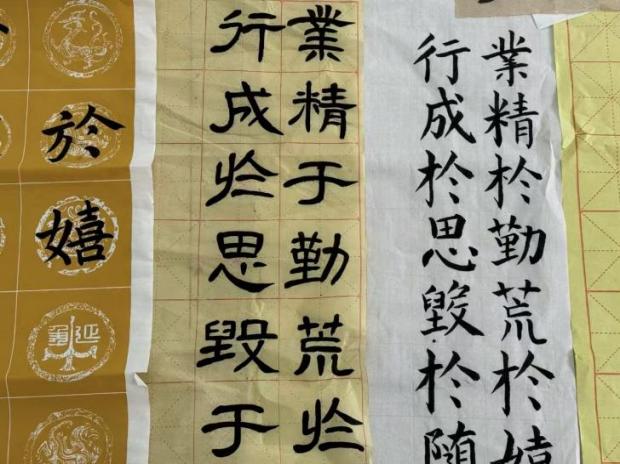 業精於勤荒於嬉
行成於思毀於随
業精于勤荒於
行成於思毀于
於嬉